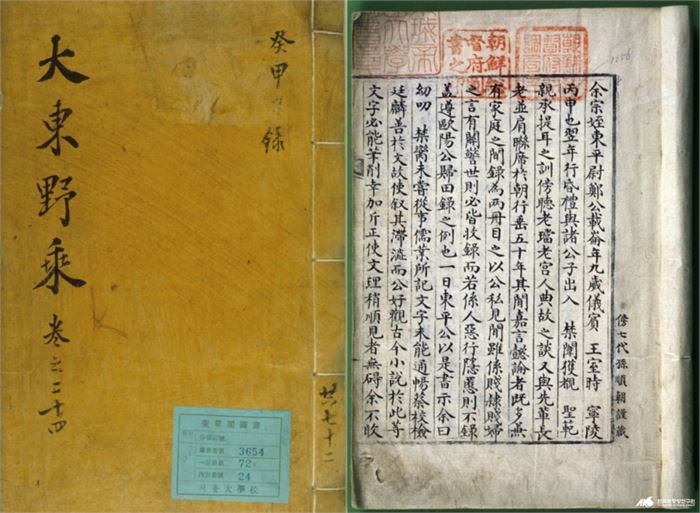 大東野乘
卷之二十四
癸甲日錄
共七十二
奎章閣圖書
圖書番號
3654
一部冊數
72
內書番號
24
서울大學校
朝鮮總
督府圖
書之
余宗姪東平尉鄭公載崙年九歲儀賓 王室時 寧陵
丙申也翌年行昏禮與諸公子出入 禁闥獲覩 聖範
親承提耳之訓傍聽老璫老宮人典故之談又與先輩長
老並肩聯席於朝行垂五十年其聞嘉言懿論者旣多兼
有家庭之聞錄爲兩冊目之以公私見聞雖係賤隸賤婦
之言有關警世則必皆收錄而若係人惡行隱慝則不錄
盖遵歐陽公歸田錄之例也一日東平公以是書示余曰
幼叨 禁臠未嘗從事儒業所記文字未能通暢蔡校檢
廷麟善於文故使叙其滯澁而公好觀古今小說於此等
文字必能筆削幸加斤正使文理稍順見者無碍余不收
七代孫順朝謹藏